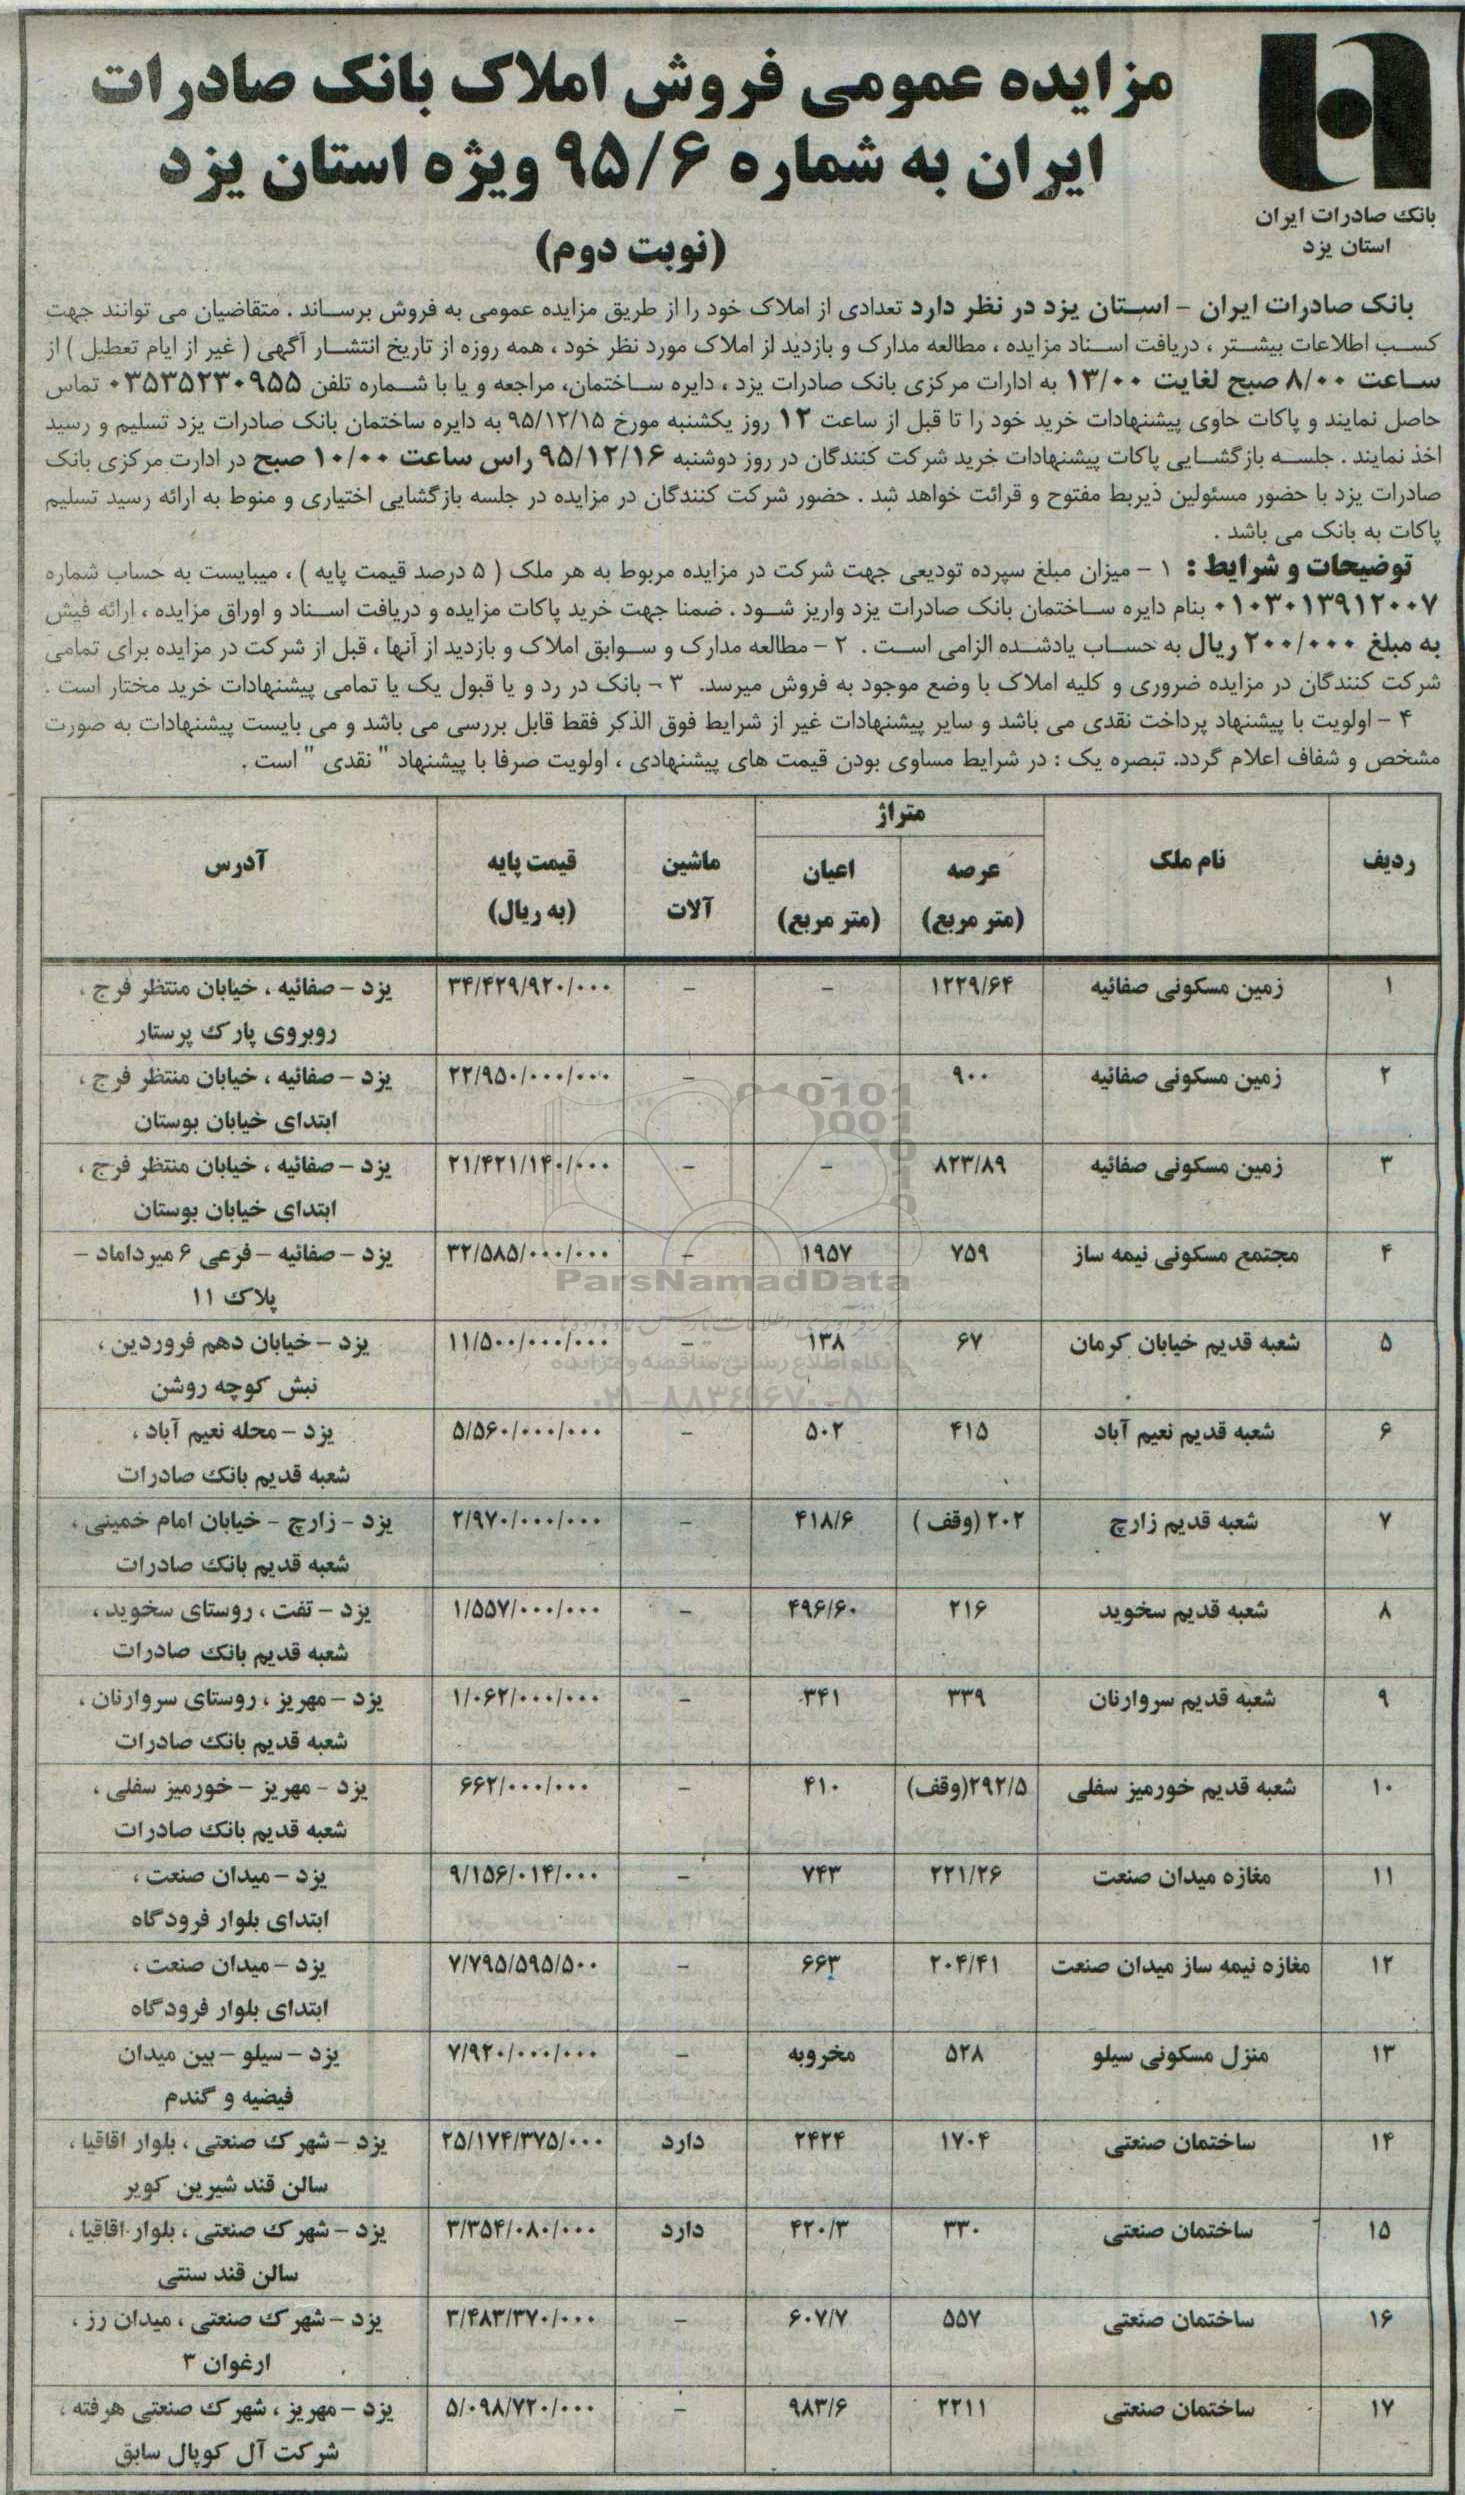 مزایده عمومی فروش املاک بانک صادرات
ایران به شماره ۹۵/۶ ویژه استان یزد
(نوبت دوم)
بانک صادرات ایران
استان یزد
بانک صادرات ایران - استان یزد در نظر دارد تعدادی از املاک خود را از طریق مزایده عمومی به فروش برساند . متقاضیان می توانند جهت
کسب اطلاعات بیشتر ، دریافت اسناد مزایده ، مطالعه مدارک و بازدید از املاک مورد نظر خود ، همه روزه از تاریخ انتشار آگهی ( غیر از ایام تعطیل ) از
ساعت ۸/۰۰ صبح لغایت ۱۳/۰۰ به ادارات مرکزی بانک صادرات یزد ، دایره ساختمان، مراجعه و یا با شماره تلفن ۰۳۵۳۵۲۳۰۹۵۵ تماس
حاصل نمایند و پاکات حاوی پیشنهادات خرید خود را تا قبل از ساعت ۱۲ روز یکشنبه مورخ ۹۵/۱۲/۱۵ به دایره ساختمان بانک صادرات یزد تسلیم و رسید
اخذ نمایند . جلسه بازگشایی پاکات پیشنهادات خرید شرکت کنندگان در روز دوشنبه ۹۵/۱۲/۱۶ راس ساعت ۱۰/۰۰ صبح در ادارت مرکزی بانک
صادرات یزد با حضور مسئولین ذیربط مفتوح و قرائت خواهد شد . حضور شرکت کنندگان در مزایده در جلسه بازگشایی اختیاری و منوط به ارائه رسید تسلیم
پاکات به بانک می باشد .
توضیحات و شرایط : ۱ - میزان مبلغ سپرده تودیعی جهت شرکت در مزایده مربوط به هر ملک ( ۵ درصد قیمت پایه ) ، میبایست به حساب شماره
۰۱۰۳۰۱۳۹۱۲۰۰۷ بنام دایره ساختمان بانک صادرات یزد واریز شود . ضمنا جهت خرید پاکات مزایده و دریافت اسناد و اوراق مزایده ، ارائه فیش
به مبلغ ۲۰۰/۰۰۰ ریال به حساب یادشده الزامی است . ۲ - مطالعه مدارک و سوابق املاک و بازدید از آنها ، قبل از شرکت در مزایده برای تمامی
شرکت کنندگان در مزایده ضروری و کلیه املاک با وضع موجود به فروش میرسد. ۳ - بانک در رد و یا قبول یک یا تمامی پیشنهادات خرید مختار است .
۴ - اولویت با پیشنهاد پرداخت نقدی می باشد و سایر پیشنهادات غیر از شرایط فوق الذکر فقط قابل بررسی می باشد و می بایست پیشنهادات به صورت
مشخص و شفاف اعلام گردد. تبصره یک : در شرایط مساوی بودن قیمت های پیشنهادی ، اولویت صرفا با پیشنهاد " نقدی " است .
ردیف نام ملک متراژ عرصه (متر مربع) اعیان (متر مربع) ماشین آلات قیمت پایه (به ریال) آدرس
۱ زمین مسکونی صفائیه ۱۲۲۹/۶۴ - - ۳۴/۴۲۹/۹۲۰/۰۰۰ یزد - صفائیه ، خیابان منتظر فرج ،
روبروی پارک پرستار
۲ زمین مسکونی صفائیه ۹۰۰ - - ۲۲/۹۵۰/۰۰۰/۰۰۰ یزد - صفائیه ، خیابان منتظر فرج ،
ابتدای خیابان بوستان
۳ زمین مسکونی صفائیه ۸۲۳/۸۹ - - ۲۱/۴۲۱/۱۴۰/۰۰۰ یزد - صفائیه ، خیابان منتظر فرج ،
ابتدای خیابان بوستان
۴ مجتمع مسکونی نیمه ساز ۷۵۹ ۱۹۵۷ - ۳۲/۵۸۵/۰۰۰/۰۰۰ یزد - صفائیه - فرعی ۶ میرداماد -
پلاک ۱۱
۵ شعبه قدیم خیابان کرمان ۶۷ ۱۳۸ - ۱۱/۵۰۰/۰۰۰/۰۰۰ یزد - خیابان دهم فروردین ،
نبش کوچه روشن
۶ شعبه قدیم نعیم آباد ۴۱۵ ۵۰۲ - ۵/۵۶۰/۰۰۰/۰۰۰ یزد - محله نعیم آباد ،
شعبه قدیم بانک صادرات
۷ شعبه قدیم زارچ ۲۰۲ (وقف ) ۴۱۸/۶ - ۲/۹۷۰/۰۰۰/۰۰۰ یزد - زارچ - خیابان امام خمینی ،
شعبه قدیم بانک صادرات
۸ شعبه قدیم سخوید ۲۱۶ ۴۹۶/۶۰ - ۱/۵۵۷/۰۰۰/۰۰۰ یزد - تفت ، روستای سخوید ،
شعبه قدیم بانک صادرات
۹ شعبه قدیم سروارنان ۳۳۹ ۳۴۱ - ۱/۰۶۲/۰۰۰/۰۰۰ یزد - مهریز ، روستای سروارنان ،
شعبه قدیم بانک صادرات
۱۰ شعبه قدیم خورمیز سفلی ۲۹۲/۵(وقف) ۴۱۰ - ۶۶۲/۰۰۰/۰۰۰ یزد - مهریز - خورمیز سفلی ،
شعبه قدیم بانک صادرات
۱۱ مغازه میدان صنعت ۲۲۱/۲۶ ۷۴۳ - ۹/۱۵۶/۰۱۴/۰۰۰ یزد - میدان صنعت ،
ابتدای بلوار فرودگاه
۱۲ مغازه نیمه ساز میدان صنعت ۲۰۴/۴۱ ۶۶۳ - ۷/۷۹۵/۵۹۵/۵۰۰ یزد - میدان صنعت ،
ابتدای بلوار فرودگاه
۱۳ منزل مسکونی سیلو ۵۲۸ مخروبه - ۷/۹۲۰/۰۰۰/۰۰۰ یزد - سیلو - بین میدان
فیضیه و گندم
۱۴ ساختمان صنعتی ۱۷۰۴ ۲۴۲۴ دارد ۲۵/۱۷۴/۳۷۵/۰۰۰ یزد - شهرک صنعتی ، بلوار اقاقیا ،
سالن قند شیرین کویر
۱۵ ساختمان صنعتی ۳۳۰ ۴۲۰/۳ دارد ۳/۳۵۴/۰۸۰/۰۰۰ یزد - شهرک صنعتی ، بلوار اقاقیا ،
سالن قند سنتی
۱۶ ساختمان صنعتی ۵۵۷ ۶۰۷/۷ - ۳/۴۸۳/۳۷۰/۰۰۰ یزد - شهرک صنعتی ، میدان رز ،
ارغوان ۳
۱۷ ساختمان صنعتی ۲۲۱۱ ۹۸۳/۶ - ۵/۰۹۸/۷۲۰/۰۰۰ یزد - مهریز ، شهرک صنعتی هرفته ،
شرکت آل کوپال سابق
ParsNamadData
پایگاه اطلاع رسانی مناقصه و مزایده
۰۲۱-۸۸۳۴۹۶۷۰-۵